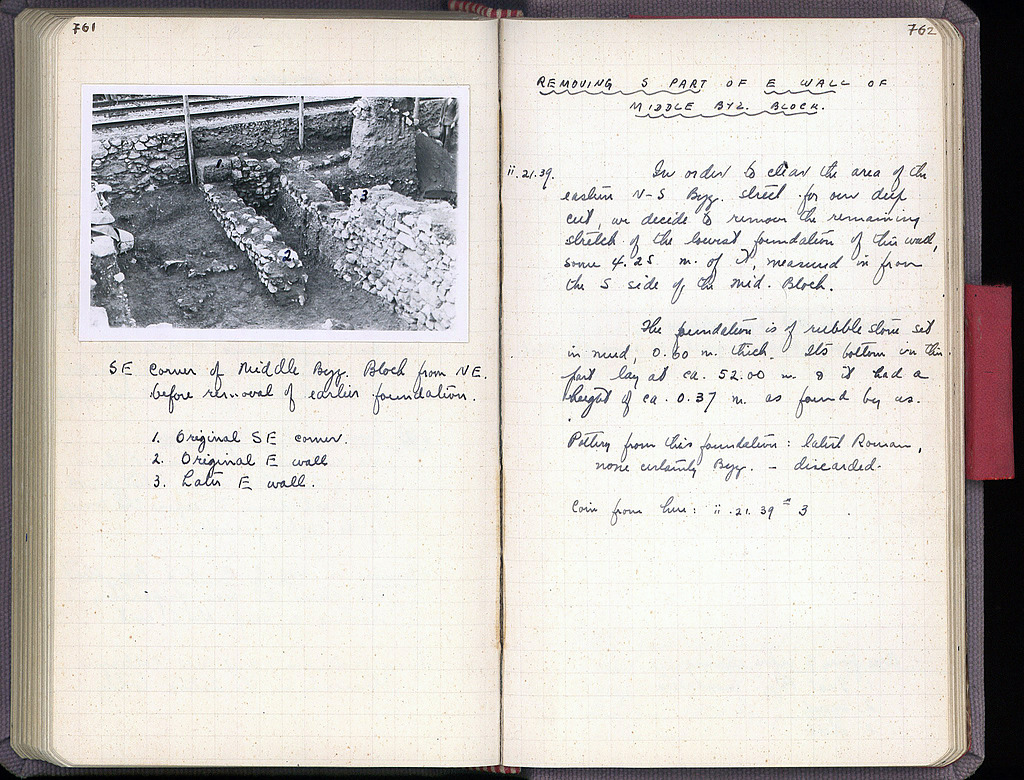 761
2
3
SE corner of Middle Byz. Block from NE.
before removal of earlier foundation.
1. Original SE corner.
2. Original E wall
3. Later E wall.
762
REMOVING S PART OF E WALL OF
MIDDLE BYZ. BLOCK.
ii.21.39. In order to clear the area of the
eastern N-S Byz. street for our deep
cut, we decide to remove the remaining
stretch of the lowest foundation of this wall,
some 4.25 m. of it, measured in from
the S side of the Mid. Block.
The foundation is of rubble stone set
in mud, 0.60 m. thick. Its bottom in this
part lay at ca. 52.00 m. & it had a
height of ca. 0.37 m. as found by us.
Pottery from this foundation: latest Roman,
none certainly Byz. – discarded.
Coin from here: ii.21.39 # 3